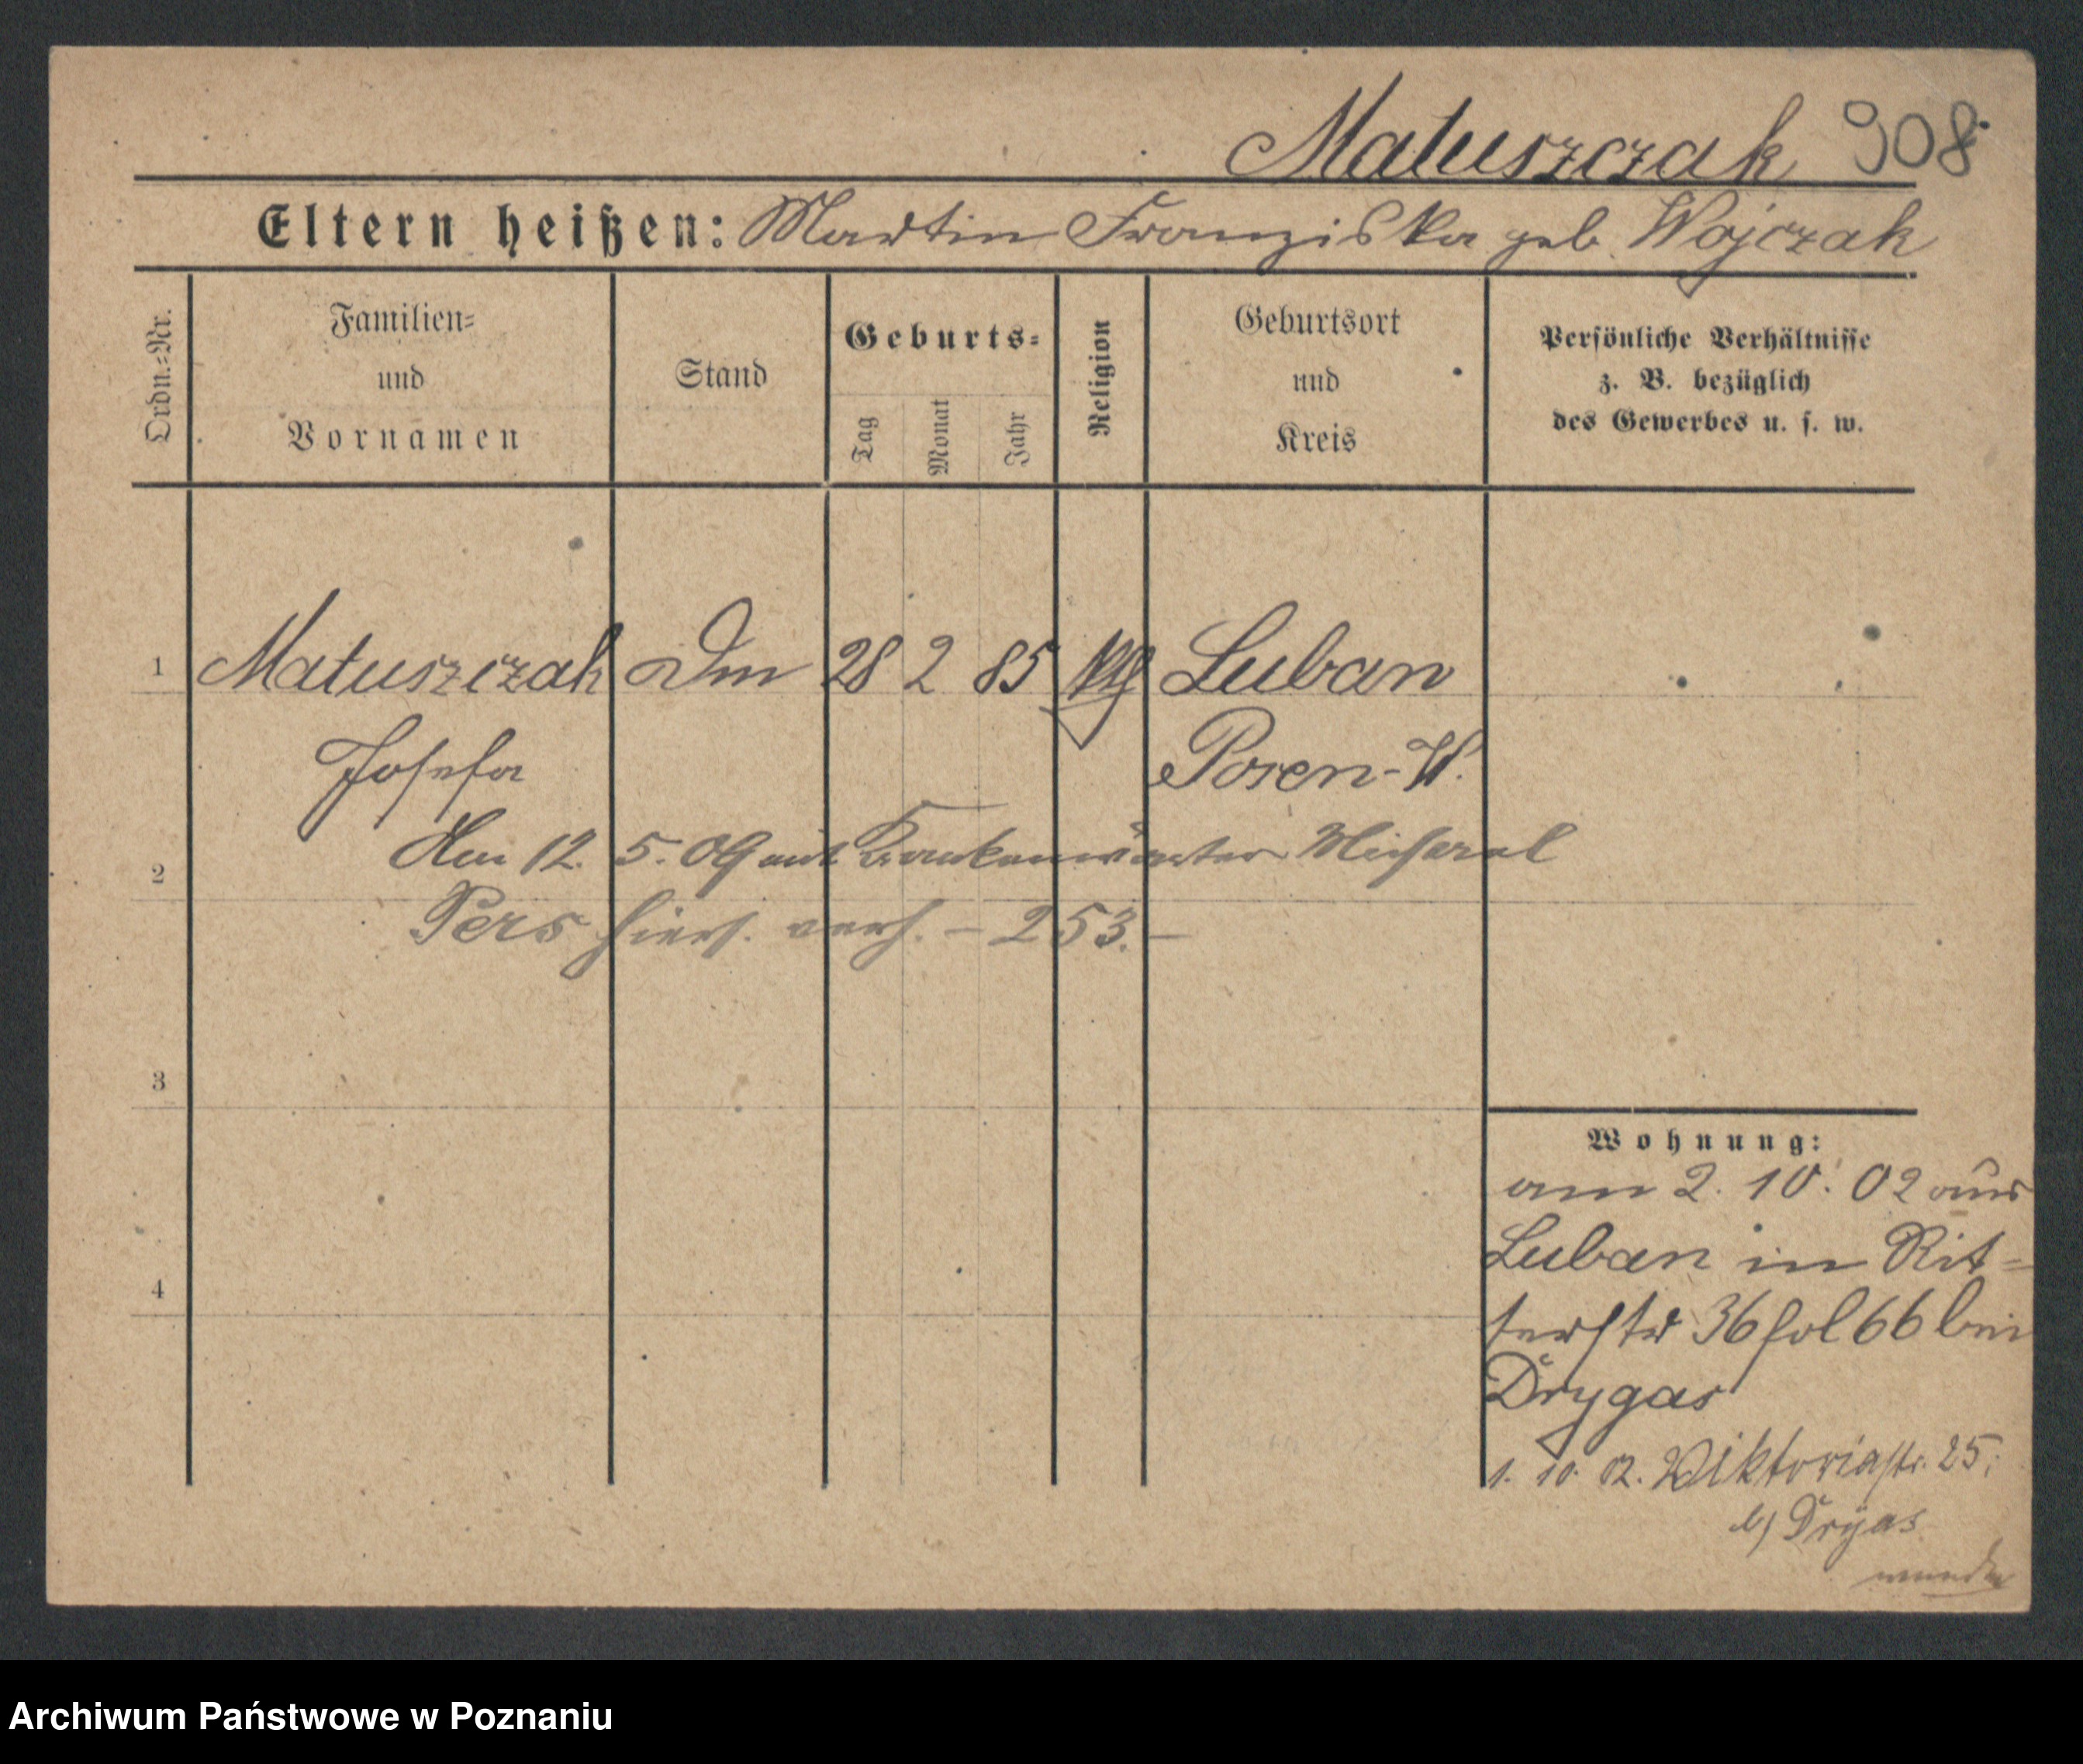 Matuszczak 908
Eltern heißen: Martin Franziska geb. Wojczak
Ordn.=Nr.
Familien=
und
Vornamen
Stand
Geburts=
Tag
Monat
Jahr
Religion
Geburtsort
und
Kreis
Persönliche Verhältnisse
z. B. bezüglich
des Gewerbes u. s. w.
1 Matuszczak Dm 28 2 85 Luban
Josefa Posen-W.
2 12. 5. 09 mit Krankenwärter Michael
Pers hiers. verh. - 253. -
3
4
Wohnung:
am 2. 10. 02 aus
Luban in Rit=
terstr 36 fol 66 bei
Drygas
1. 10. 02. Viktoriastr. 25.
b/ Dryas
Archiwum Państwowe w Poznaniu